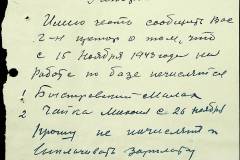 Имею честь сообщить Вос
г-н о том, что
с 15 Ноября 1943 года на
Работе по базе числятся
1 Быстровский
2 Чайка Михаил с 26 ноября
Прошу не
выплачивать зарплату